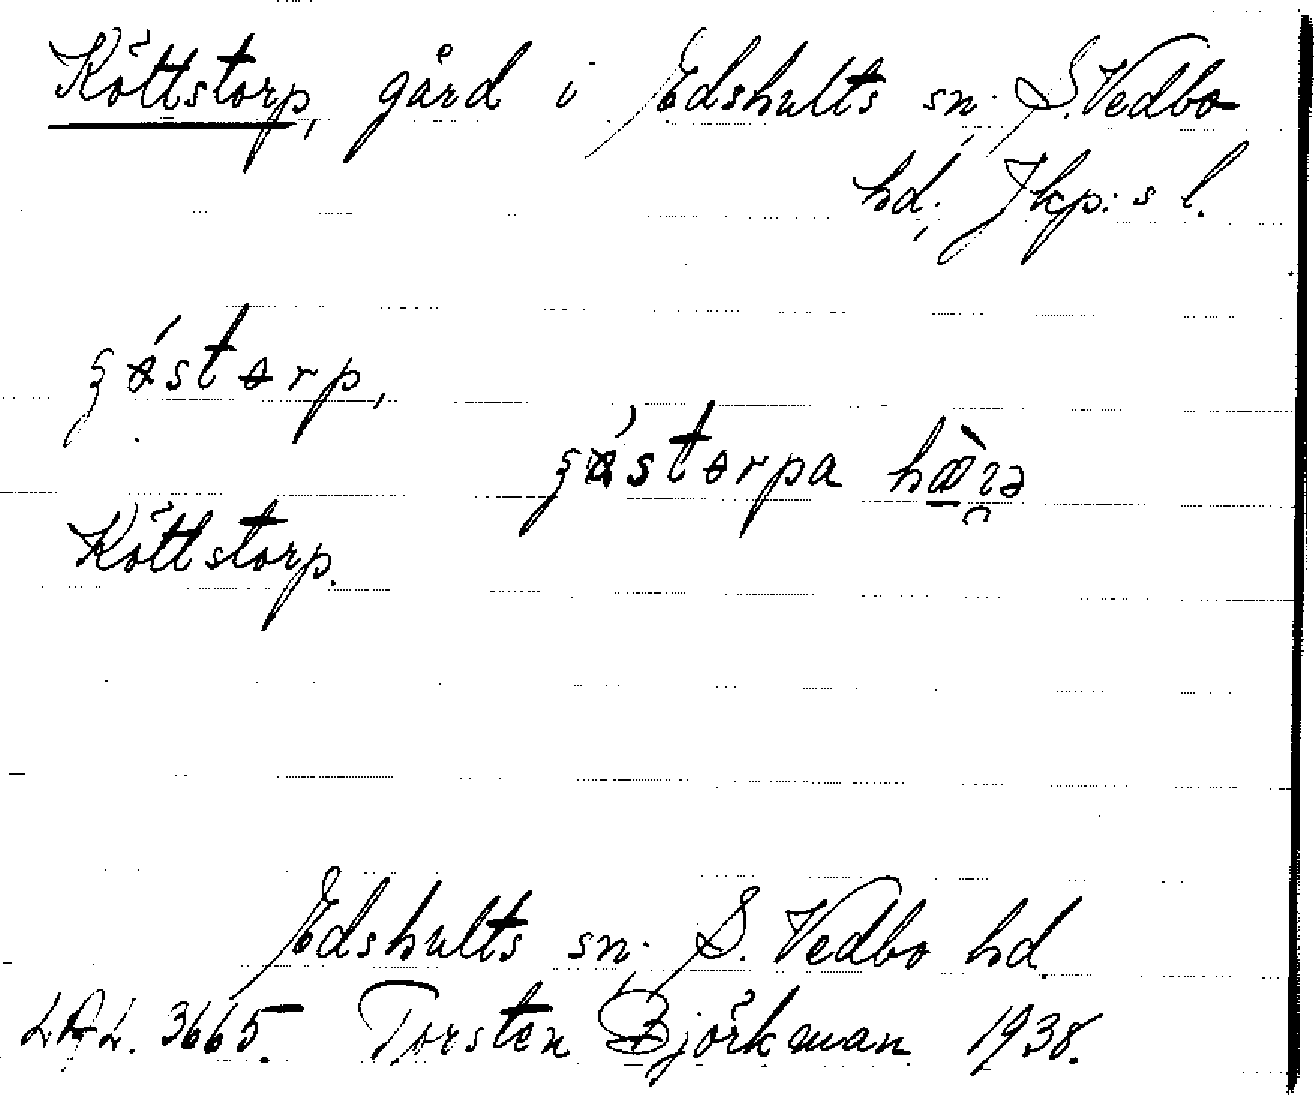 Köttstorp, gård i Edshults sn; S. Vedbo
hd; Jkp:s l.
Köttstorp.
Edshults sn; S. Vedbo hd.
LAL. 3665. Torsten Björkman 1938.